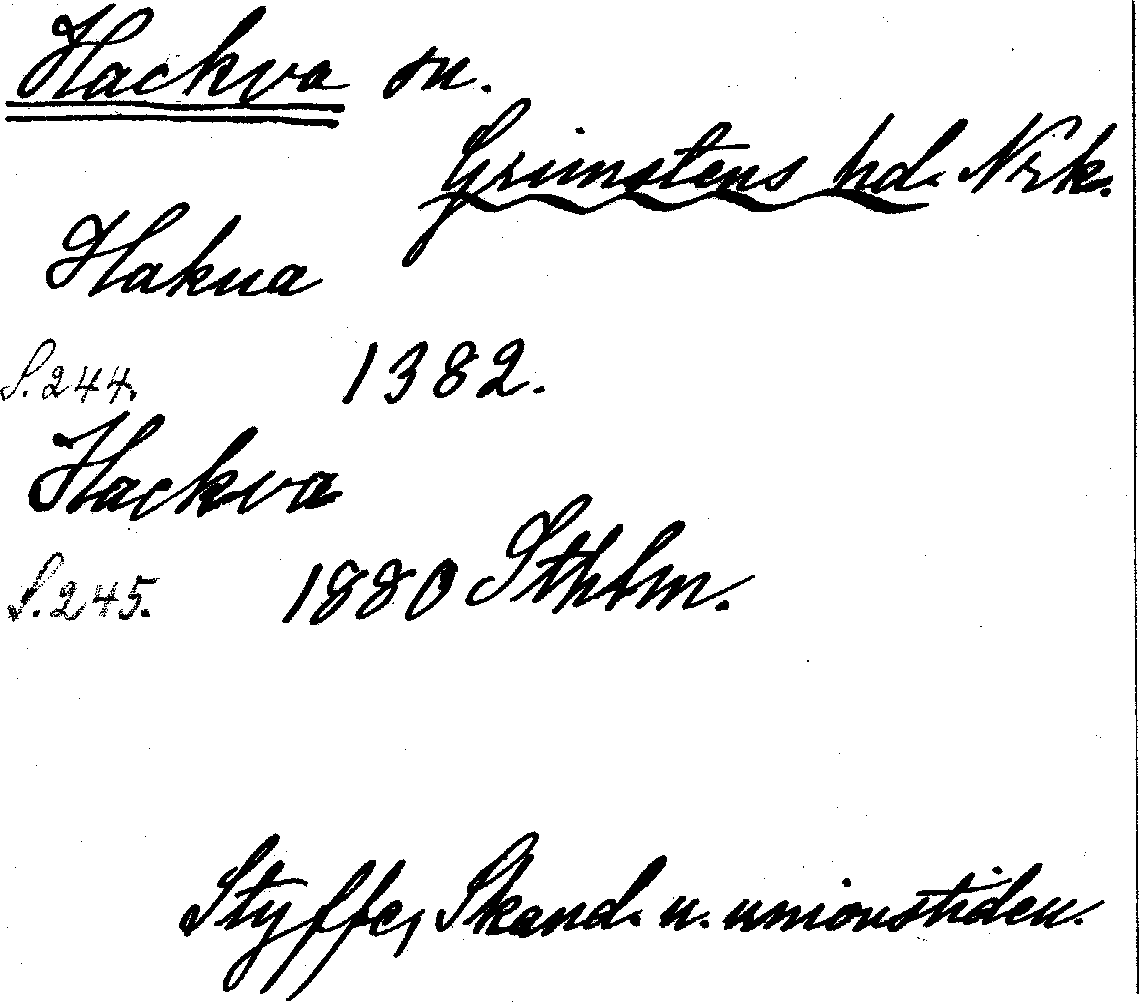 Hackva sn.
Grimstens hd. Nrk.
Hakua
S.244. 1382.
Hackva
S.245. 1880 Sthlm.
Styffe, Skand. u. unionstiden.